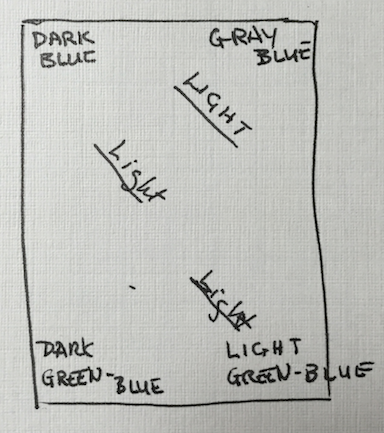 DARK
BLUE
GRAY
BLUE
LIGHT
Light
Light
DARK
GREEN-BLUE
LIGHT
GREEN-BLUE